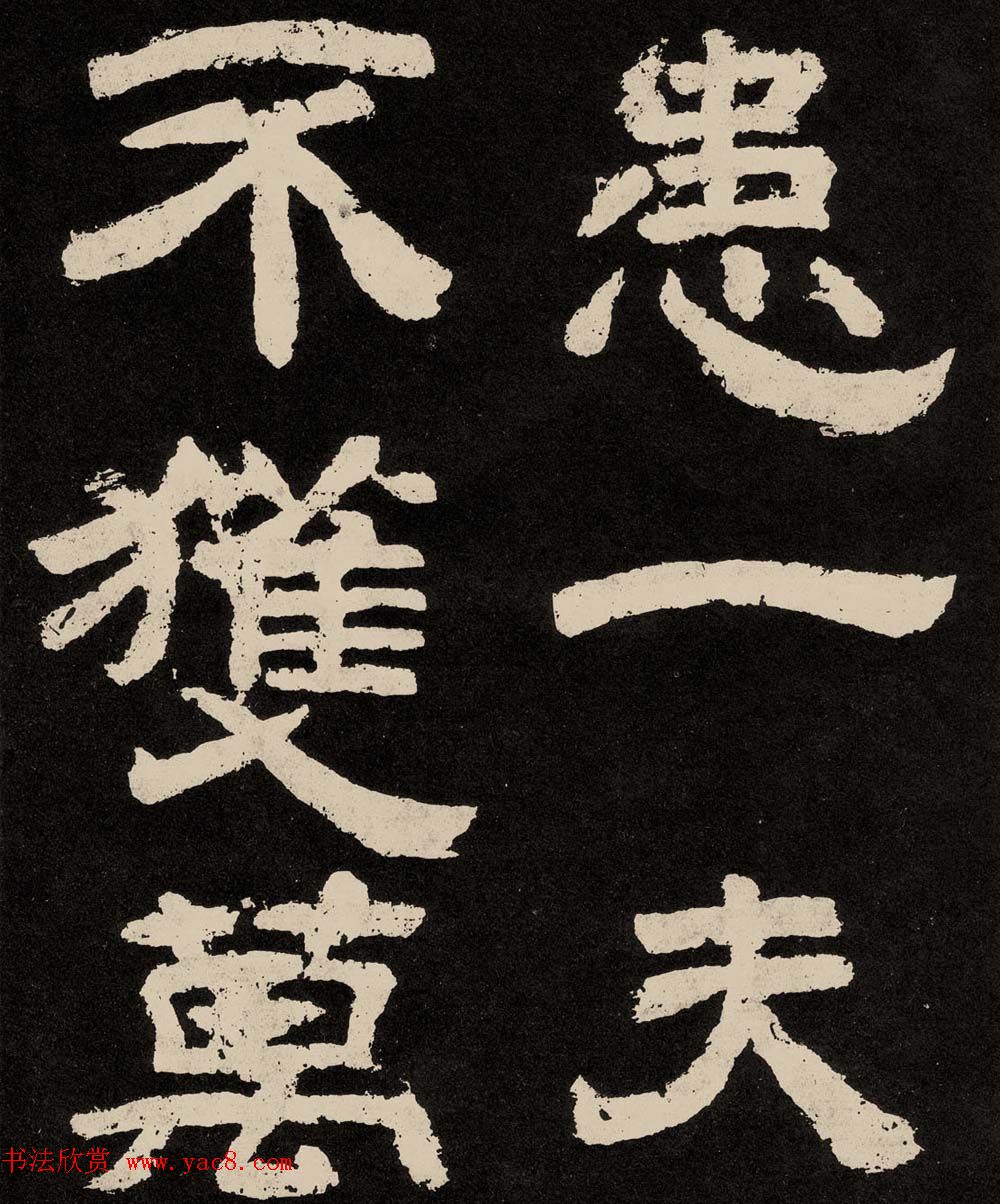 患一夫
不獲萬
书法欣赏 www.yac8.com